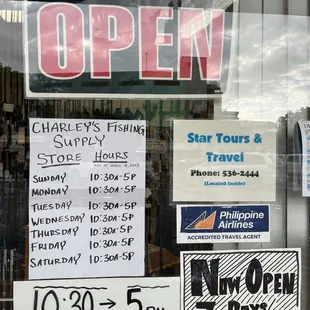 OPEN
CHARLEY'S FISHING
SUPPLY
STORE HOURS
SUNDAY 10:30A-5P
MONDAY 10:30A-5P
TUESDAY 10:30A-5P
WEDNESDAY 10:30A-5P
THURSDAY 10:30A-5P
FRIDAY 10:30A-5P
SATURDAY 10:30A-5P
10:30 → 5PM
Star Tours &
Travel
Phone: 536-2444
(Located Inside)
Philippine
Airlines
ACCREDITED TRAVEL AGENT
NOW OPEN
7 DAYS